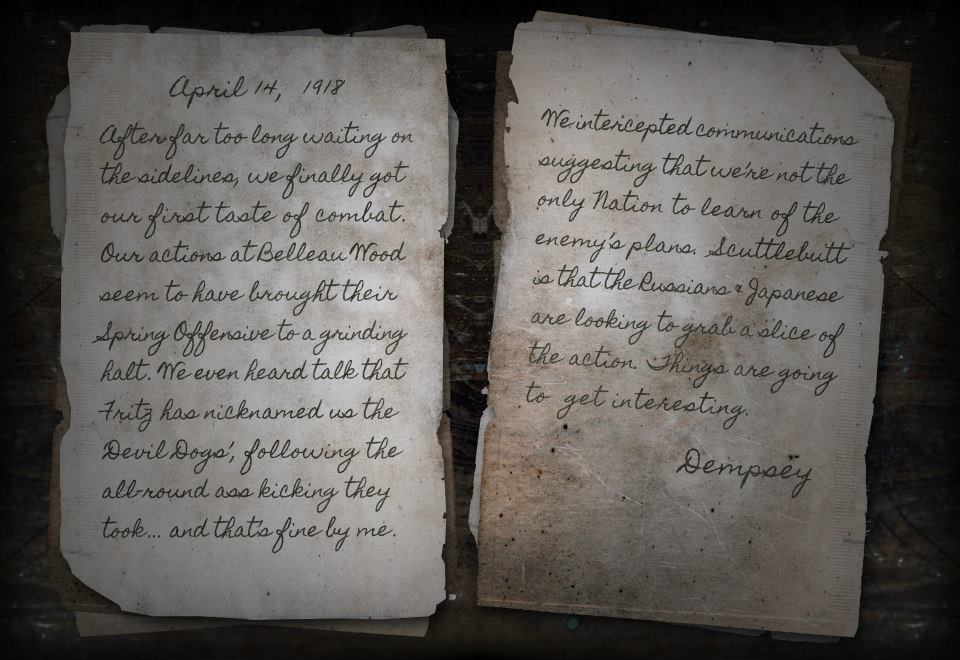 April 14, 1918
After far too long waiting on
the sidelines, we finally got
our first taste of combat.
Our actions at Belleau Wood
seem to have brought their
Spring Offensive to a grinding
halt. We even heard talk that
Fritz has nicknamed us the
Devil Dogs', following the
all-round ass kicking they
took... and that's fine by me.
We intercepted communications
suggesting that we're not the
only Nation to learn of the
enemy's plans. Scuttlebutt
is that the Russians & Japanese
are looking to grab a slice of
the action. Things are going
to get interesting.
Dempsey